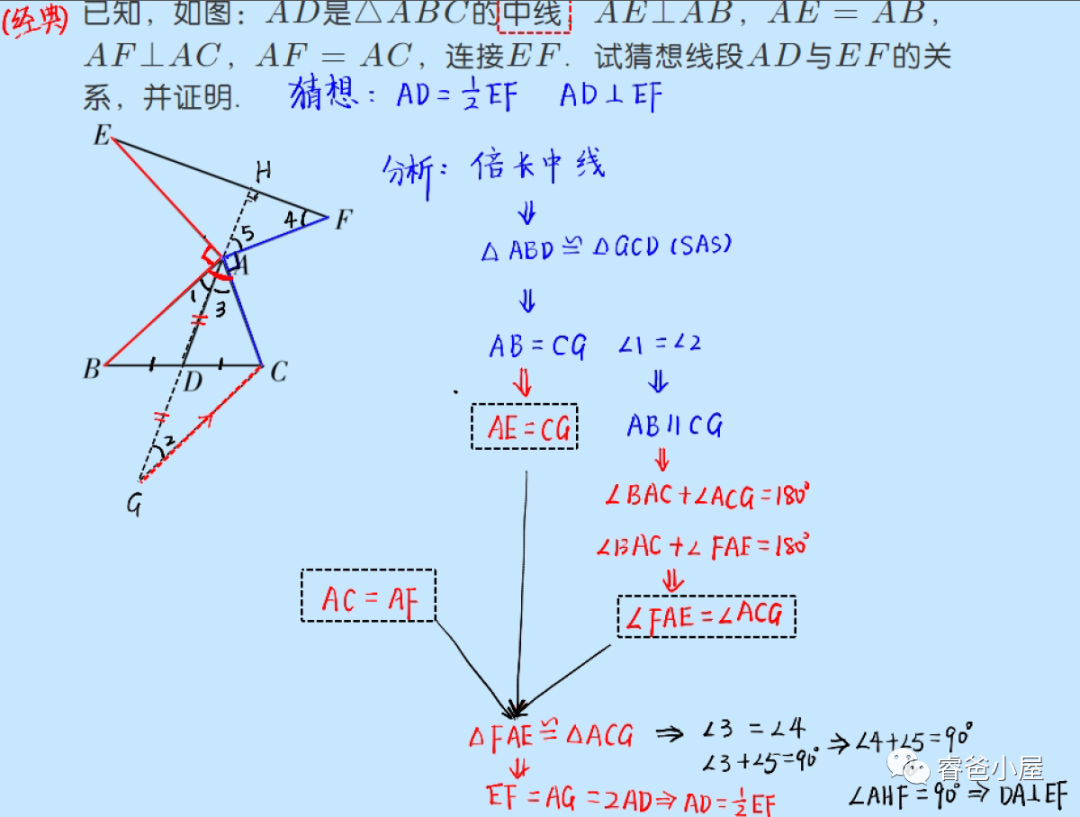 (经典) 已知，如图：AD是△ABC的中线，AE⊥AB，AE = AB，
AF⊥AC，AF = AC，连接EF．试猜想线段AD与EF的关
系，并证明.
猜想：AD=½EF AD⊥EF
分析：倍长中线
⇓
△ABD≌△GCD (SAS)
⇓
AB=CG ∠1=∠2
⇓ ⇓
AE=CG AB∥CG
⇓
∠BAC+∠ACG=180°
∠BAC+∠FAE=180°
⇓
AC=AF ∠FAE=∠ACG
△FAE≌△ACG ⇒ ∠3=∠4
∠3+∠5=90° ⇒ ∠4+∠5=90°
⇓
EF=AG=2AD⇒AD=½EF
∠AHF=90°⇒DA⊥EF
E
H
4
F
5
A
1
3
B
D
C
2
G
睿爸小屋